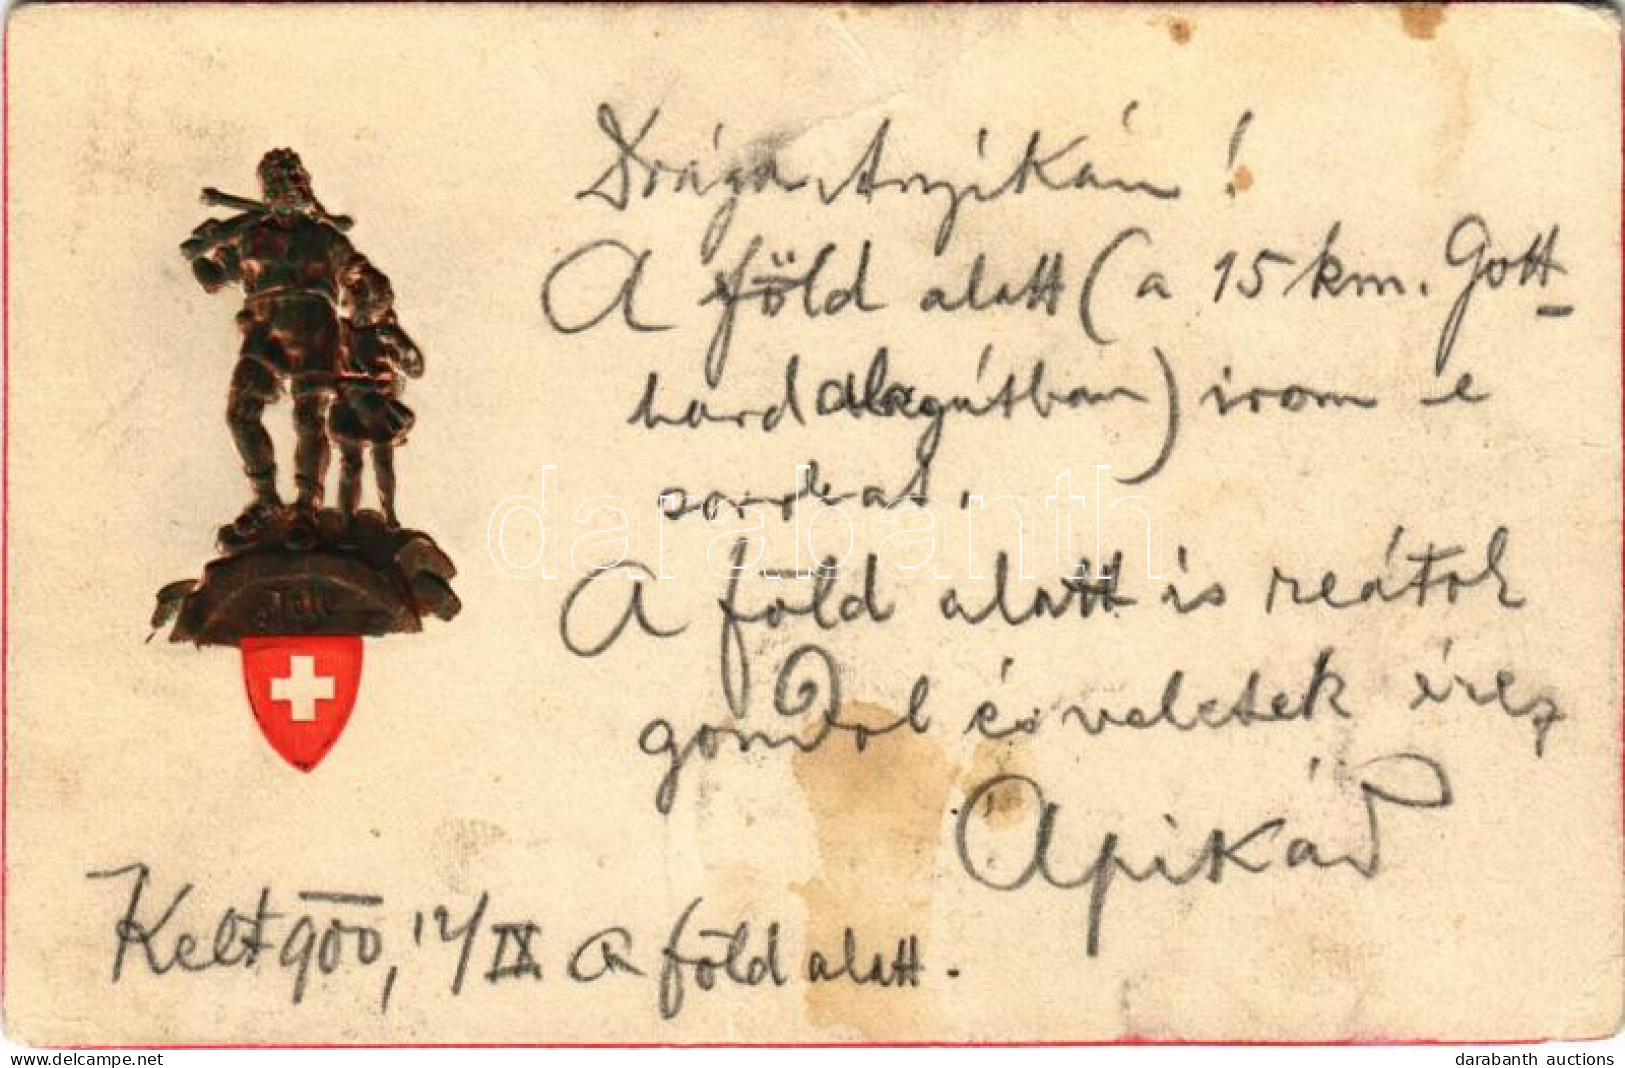 Drága Anyikám!
A föld alatt (a 15 km. Gott-
hard alagútban) irom e
sorokat.
A föld alatt is reátok
gondol és veletek érez
Apikád
Kelt 900, 12/IX a föld alatt.
Tell
darabanth
darabanth auctions
delcampe.net